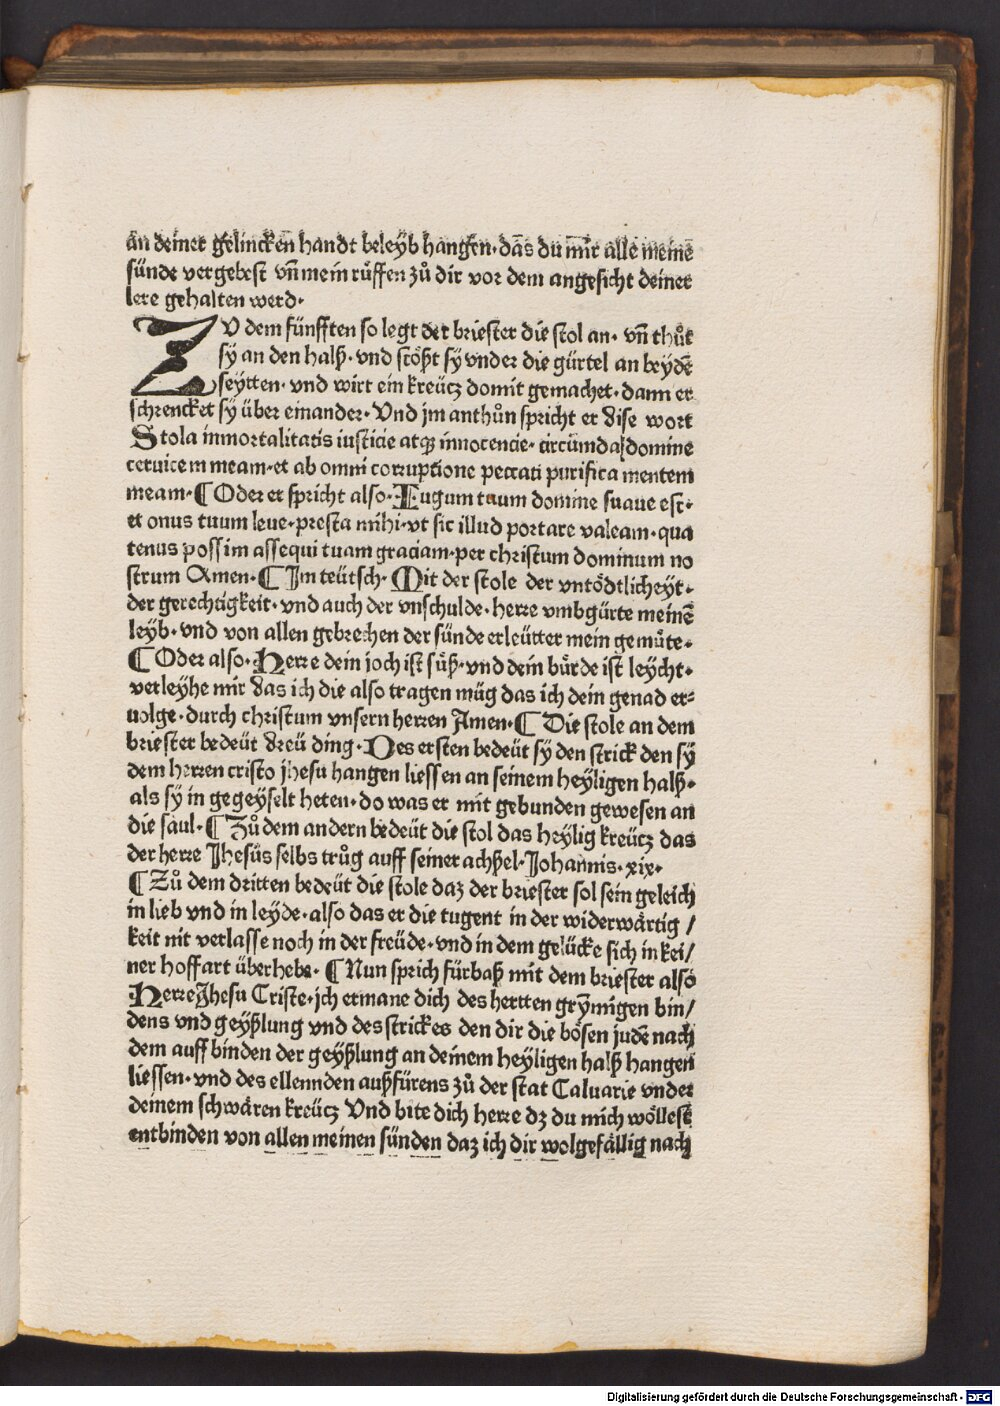 an deiner gelincken handt beleyb hangen· das du mir alle meinē
sünde vergebest vn̄ mein růffen zů dir vor dem angesicht deiner
lere gehalten werd·
ZV dem fünfften so legt der briester die stol an· vn̄ thůt
sy an den halß· vnd stößt sy vnder die gürtel an beydē
seytten· vnd wirt ein kreücz domit gemachet· dann er
schrencket sy über einander· Vnd jm anthůn spricht er dise wort
Stola inmortalitatis iusticie atqꝫ innocencie· circumda domine
ceruicem meam· et ab omni corruptione peccati purifica mentem
meam· ¶ Oder er spricht also· Iugum tuum domine suaue est·
et onus tuum leue· presta mihi· vt sic illud portare valeam· qua
tenus possim assequi tuam graciam· per christum dominum no
strum Amen· ¶ Im teütsch· Mit der stole der vntödtlicheyt·
der gerechtigkeit· vnd auch der vnschulde· herre vmbgürte meinē
leyb· vnd von allen gebrechen der sünde erleütter mein gemüte·
¶ Oder also· Herre dein joch ist süß· vnd dein bürde ist leycht·
verleyhe mir das ich die also tragen müg das ich dein genad er⸗
uolge· durch christum vnsern herren Amen· ¶ Die stole an dem
briester bedeüt dreü ding· Des ersten bedeüt sy den strick den sy
dem herren cristo jhesu hangen liessen an seinem heyligen halß·
als sy in gegeyselt heten· do was er mit gebunden gewesen an
die saul· ¶ Zů dem andern bedeüt die stol das heylig kreücz das
der herre Jhesüs selbs trůg auff seiner achßel· Johannis· xix·
¶ Zů dem dritten bedeüt die stole daz der briester sol sein geleich
in lieb vnd in leyde· also das er die tugent in der widerwärtig /
keit nit verlasse noch in der freüde· vnd in dem gelücke sich in kei/
ner hoffart überhebe· ¶ Nun sprich fürbaß mit dem briester also
Herre Jhesu Criste· jch ermane dich des hertten grymigen bin/
dens vnd geyßlung vnd des strickes den dir die bösen judē nach
dem auff binden der geyßlung an deinem heyligen halß hangen
liessen· vnd des ellennden außfürens zů der stat Caluarie vnder
deinem schwären kreücz Vnd bite dich herre dz du mich wöllest
entbinden von allen meinen sünden daz ich dir wolgefällig nach
Digitalisierung gefördert durch die Deutsche Forschungsgemeinschaft - DFG